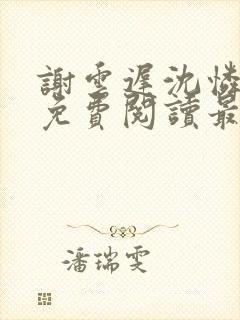 謝雲遲沈憐
免費閱讀最
潘瑞雯